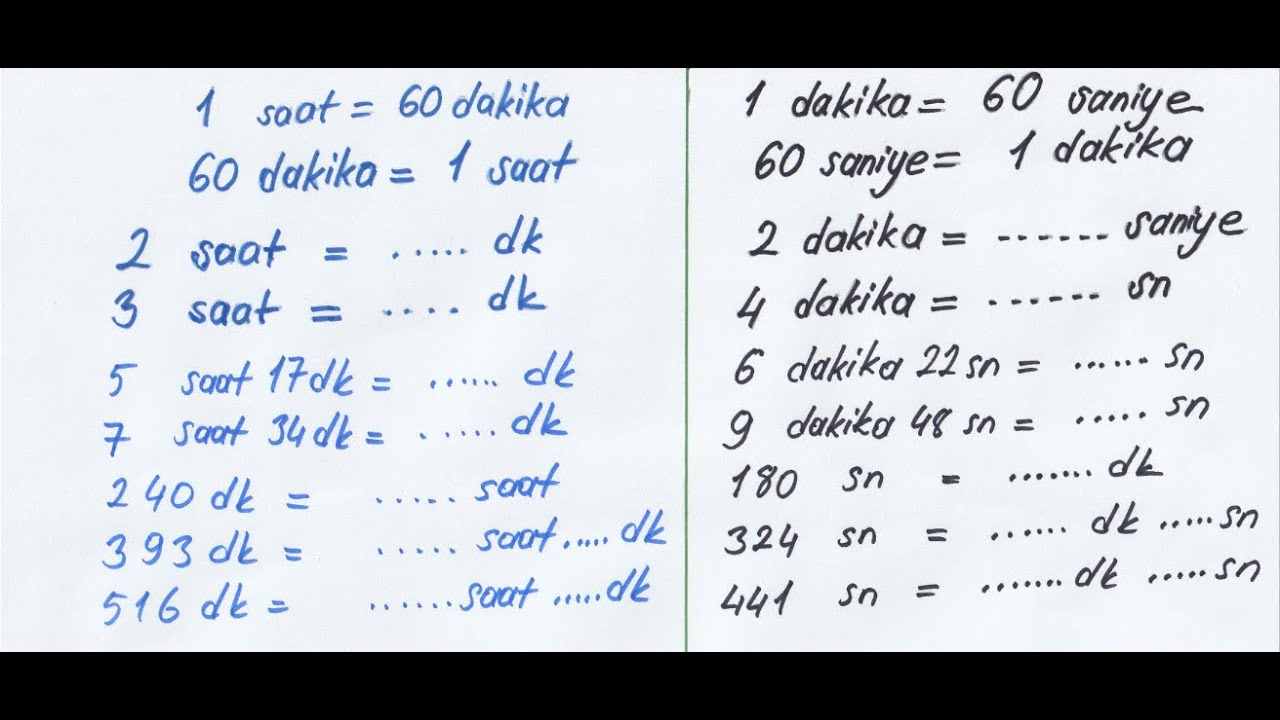 1 saat = 60 dakika
60 dakika = 1 saat
2 saat = ..... dk
3 saat = .... dk
5 saat 17 dk = ...... dk
7 saat 34 dk = ..... dk
240 dk = ..... saat
393 dk = ..... saat ..... dk
516 dk = ...... saat ..... dk
1 dakika = 60 saniye
60 saniye = 1 dakika
2 dakika = ------ saniye
4 dakika = ------ sn
6 dakika 22 sn = ...... sn
9 dakika 48 sn = ..... sn
180 sn = ....... dk
324 sn = ...... dk ..... sn
441 sn = ....... dk ..... sn